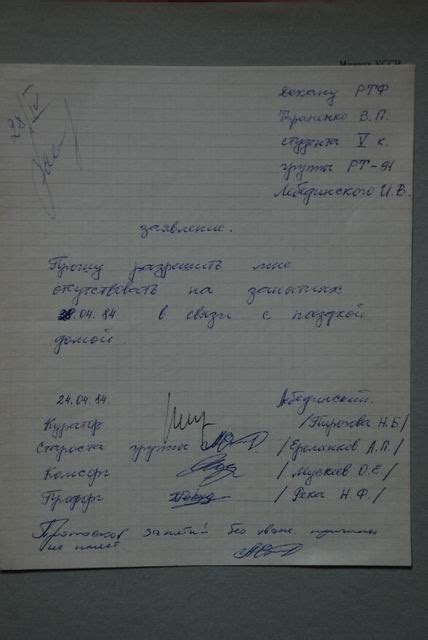 Декану РТФ
Тараненко В.П.
студента V к.
группы РТ-91
Лебединского И.В.
заявление.
Прошу разрешить мне
отсутствовать на занятиях
28.04.84 в связи с поздкой
домой.
24.04.84. Лебединский.
Куратор /Пирогова Н.Б/
Староста группы /Ермаков А.П./
Комсорг /Мускеев О.Е/
Профорг /Река Н.Ф./
Пропусков занятий без уваж. причины
не имеет